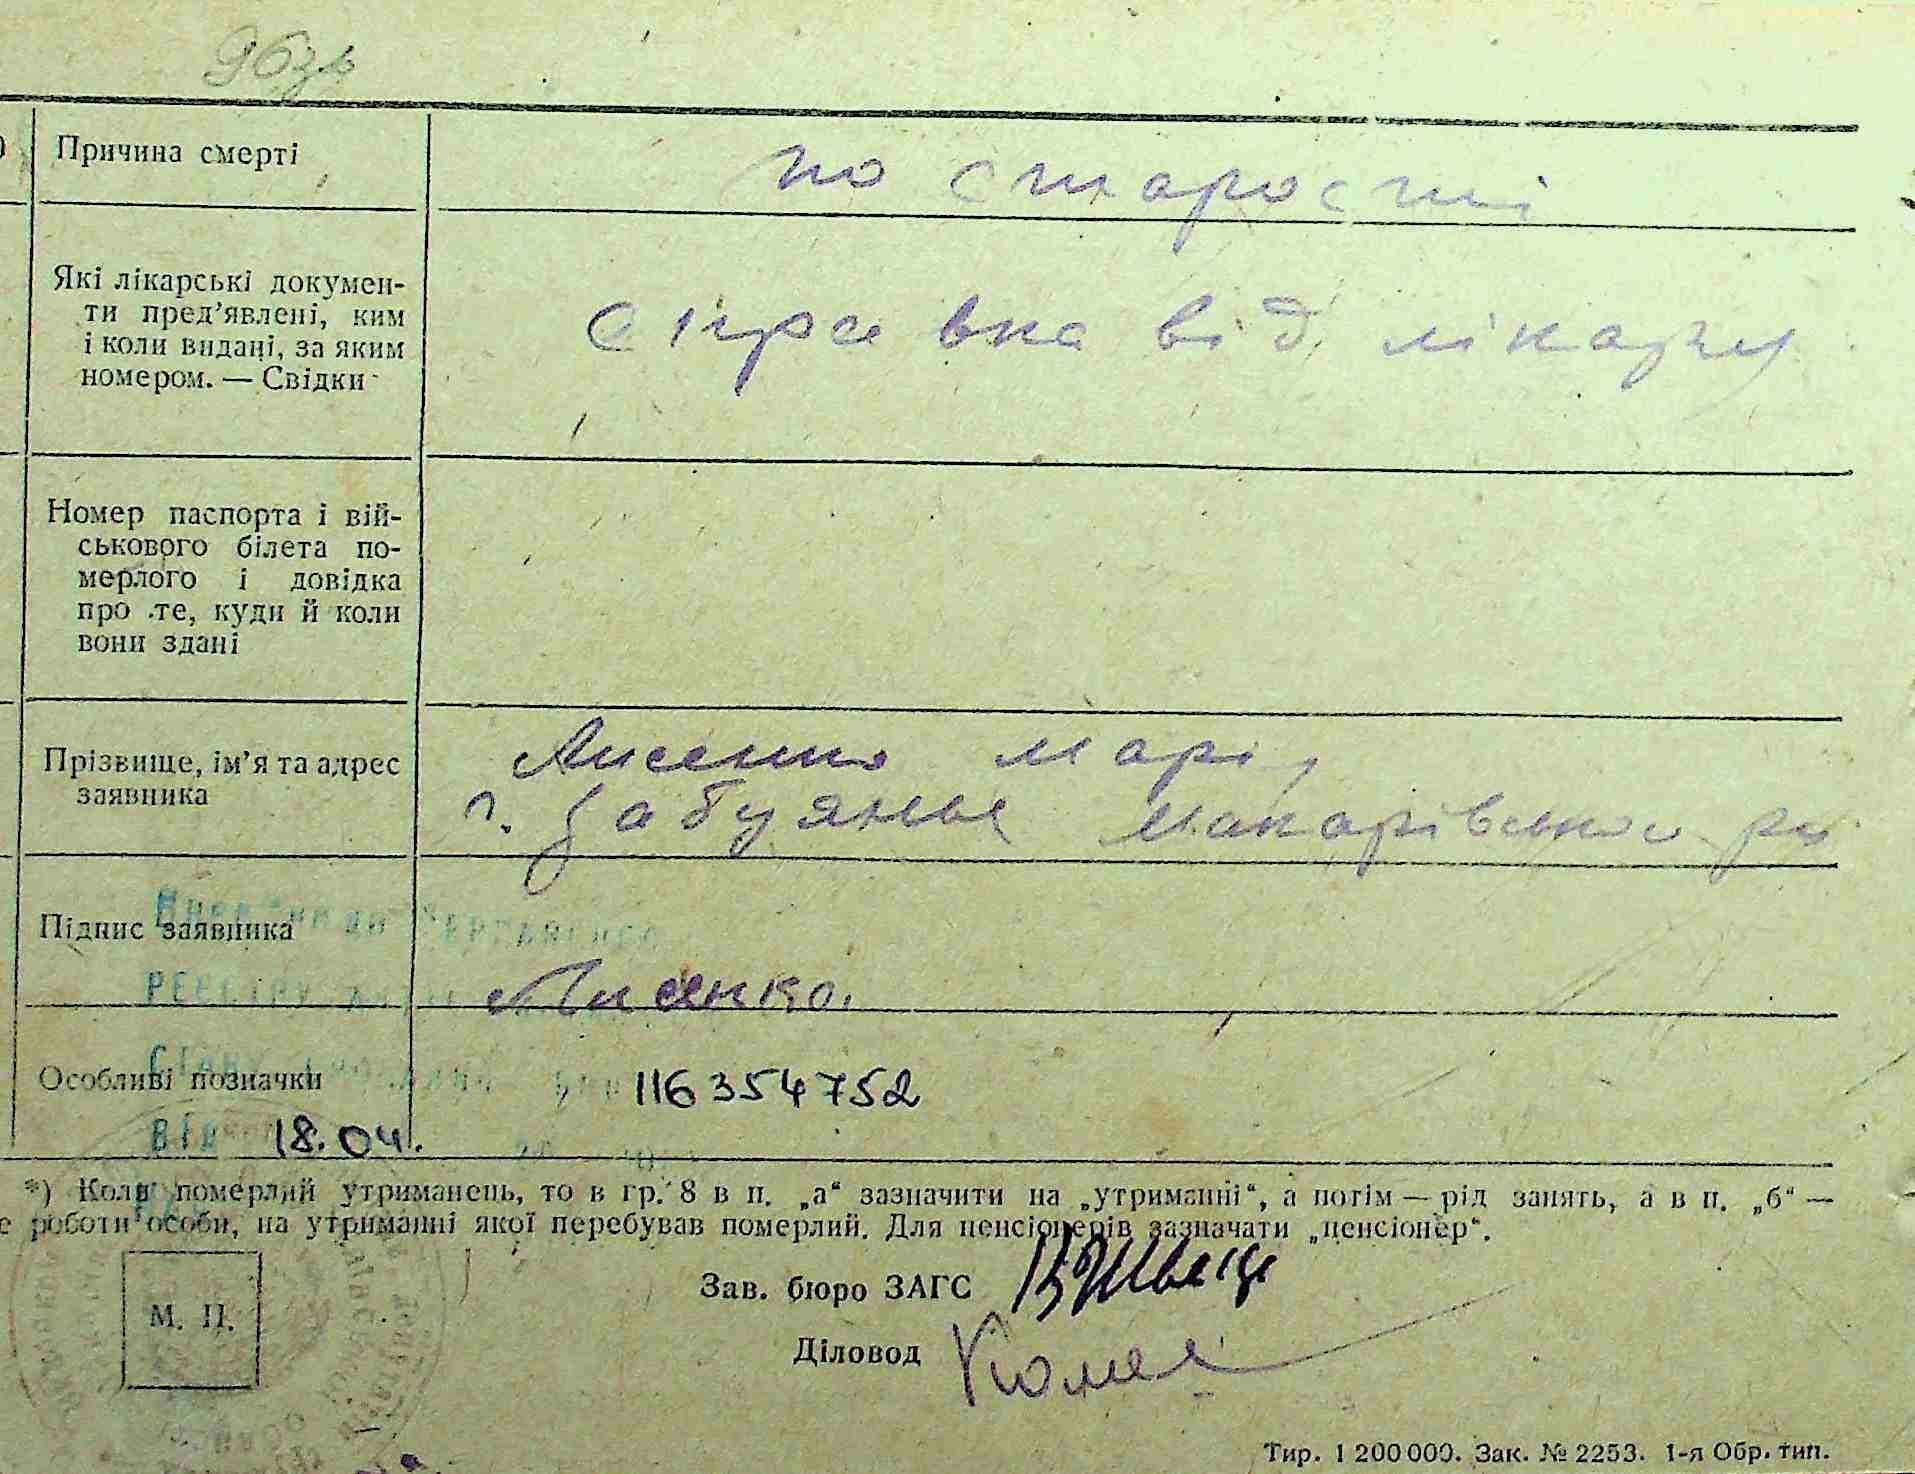 Причина смерті
по старості
Які лікарські докумен-
ти пред'явлені, ким
і коли видані, за яким
номером. — Свідки
справка від лікару
Номер паспорта і вій-
ськового білета по-
мерлого і довідка
про те, куди й коли
вони здані
Прізвище, ім'я та адрес
заявника
Лисенко Марі
с. Забуяння Макарівського рн
Підпис заявника
Лисенко.
Особливі позначки
116354752
від 18.04.
*) Коли померлий утриманець, то в гр. 8 в п. „а“ зазначити на „утриманні“, а потім — рід занять, а в п. „б“ —
е роботи особи, на утриманні якої перебував померлий. Для пенсіонерів зазначати „пенсіонер“.
М. П.
Зав. бюро ЗАГС
Діловод
Тир. 1 200 000. Зак. № 2253. 1-я Обр. тип.